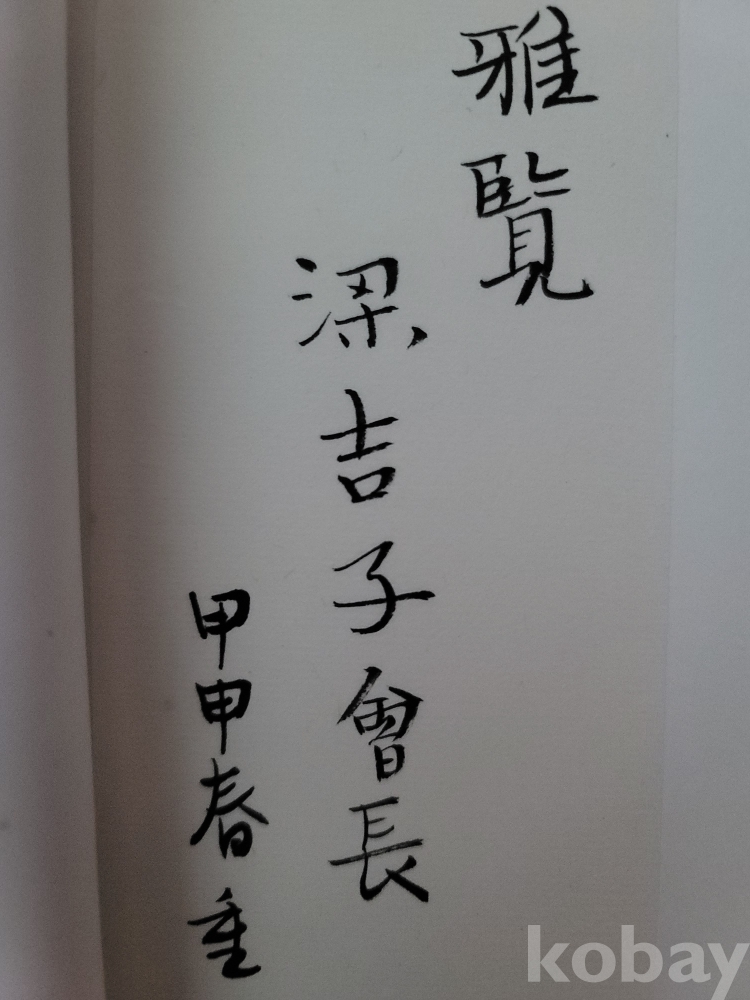 雅覽
梁吉子會長
甲申春重
kobay